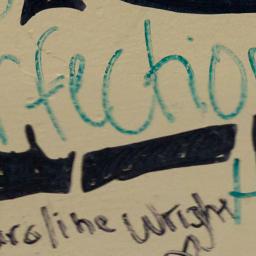 nfection
aroline Wright